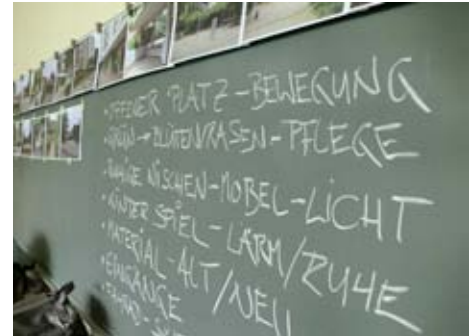 • OFFENER PLATZ - BEWEGUNG
• GRÜN → BLÜTENRASEN - PFLEGE
• RUHIGE NISCHEN - MÖBEL - LICHT
• WINTER SPIEL - LÄRM/RUHE
• MATERIAL - ALT/NEU
• EINGÄNGE